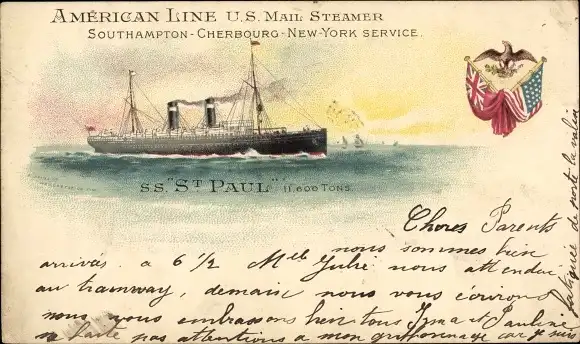 AMERICAN LINE U.S. MAIL STEAMER
SOUTHAMPTON-CHERBOURG-NEW-YORK SERVICE.
S.S. "ST PAUL" 11,600 TONS.
Chores Parents
nous sommes bien
arrivés a 6 1/2 Mlle Julie nous attendai
au tramway, demain nous vous écrirons
nous vous embrassons bien tous Irma et Pauline
ne faite pas attentions a mon griffonnage car je suis
fatiguée de porte la valise